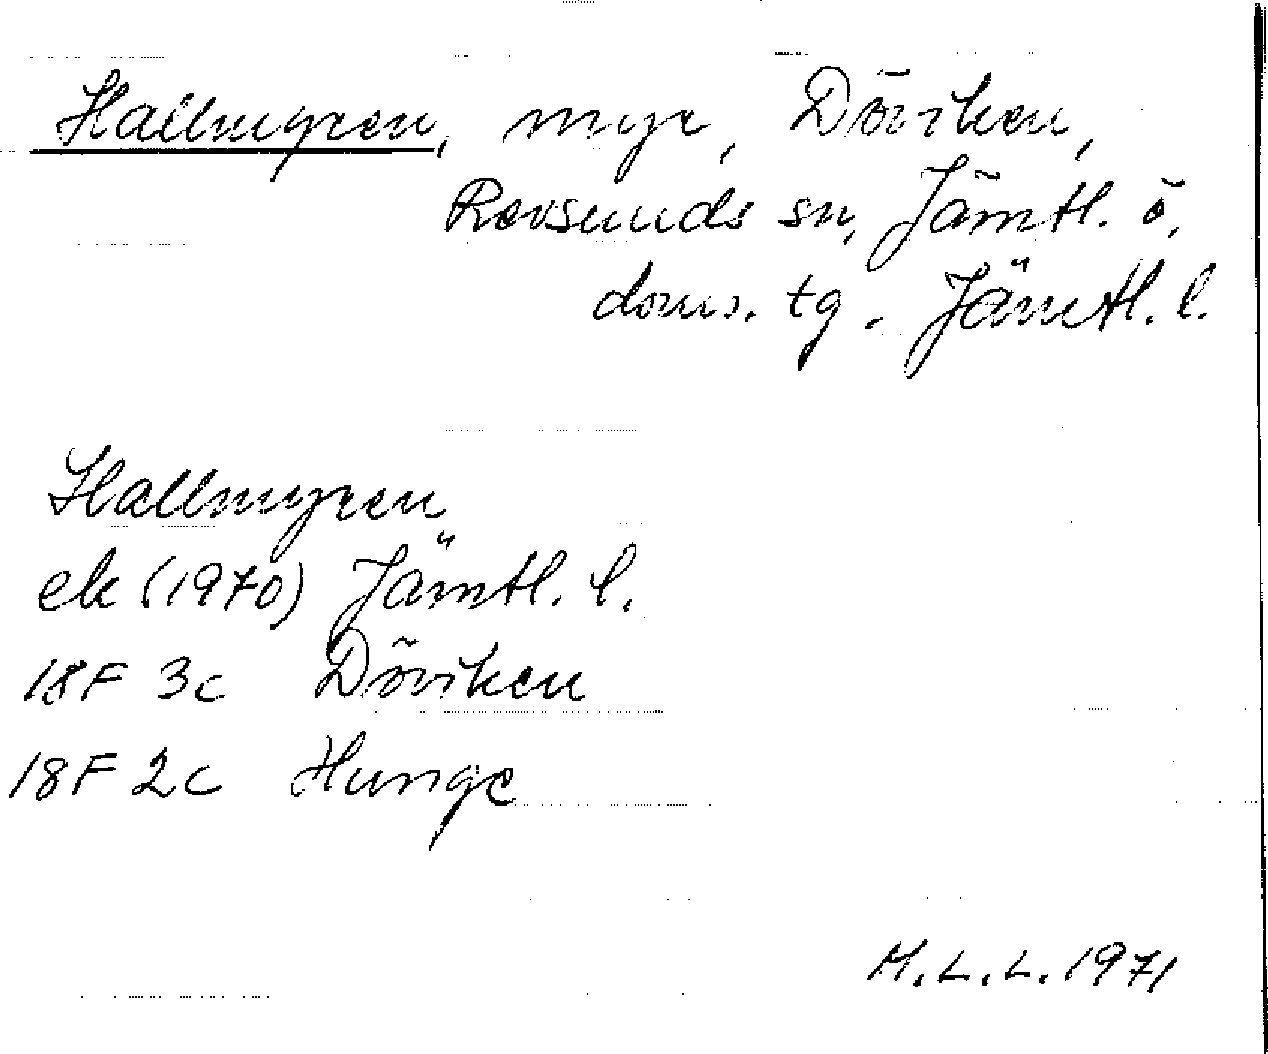 Hallmyren, myr, Döviken,
Revsunds sn, Jämtl. ö.
doms. tg. Jämtl. l.
Hallmyren
ek (1970) Jämtl. l.
18F 3c Döviken
18F 2c Hunge
M.L.L. 1971